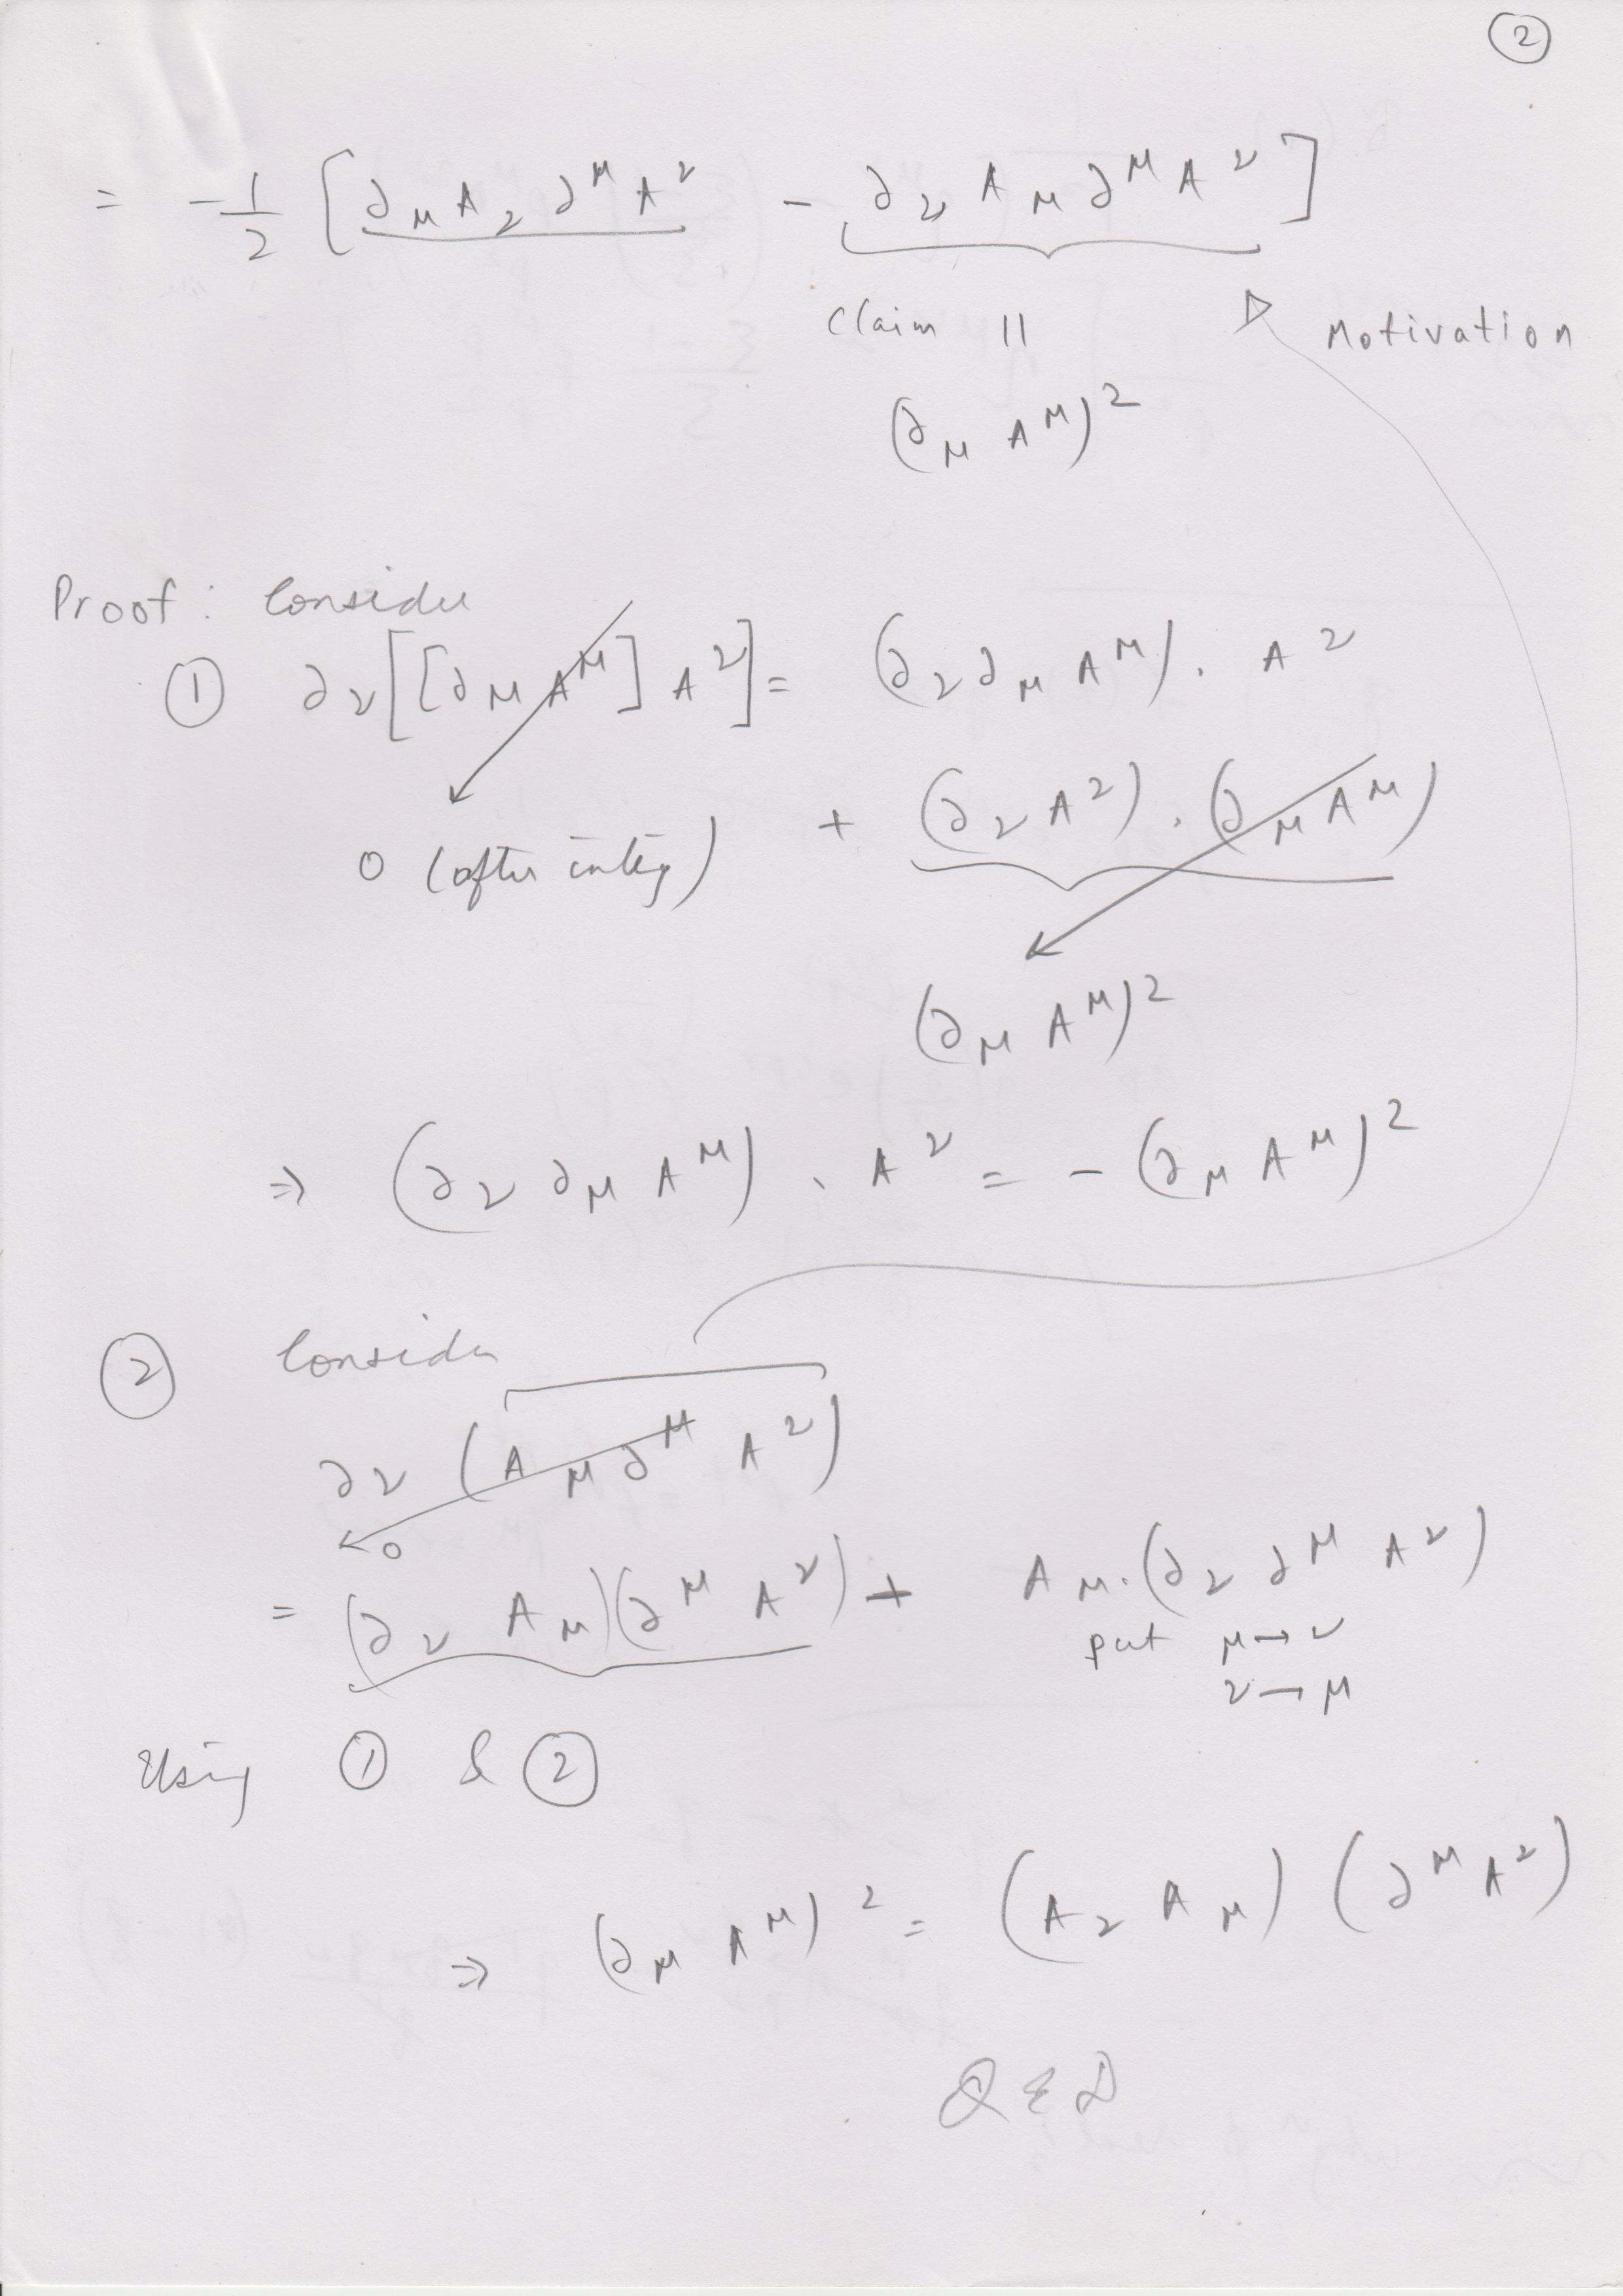 ②
= -1/2 [∂_μ A_ν ∂^μ A^ν - ∂_ν A_μ ∂^μ A^ν]
Claim || Motivation
(∂_μ A^μ)^2
Proof : Consider
① ∂_ν[[∂_μ A^μ] A^ν] = (∂_ν ∂_μ A^μ) . A^ν
0 (after integ) + (∂_ν A^ν) . (∂_μ A^μ)
(∂_μ A^μ)^2
⇒ (∂_ν ∂_μ A^μ) . A^ν = - (∂_μ A^μ)^2
② Consider
∂_ν (A_μ ∂^μ A^ν)
0
= (∂_ν A_μ)(∂^μ A^ν) + A_μ . (∂_ν ∂^μ A^ν)
put μ → ν
ν → μ
Using ① & ②
⇒ (∂_μ A^μ)^2 = (A_ν A_μ) (∂^μ A^ν)
QED